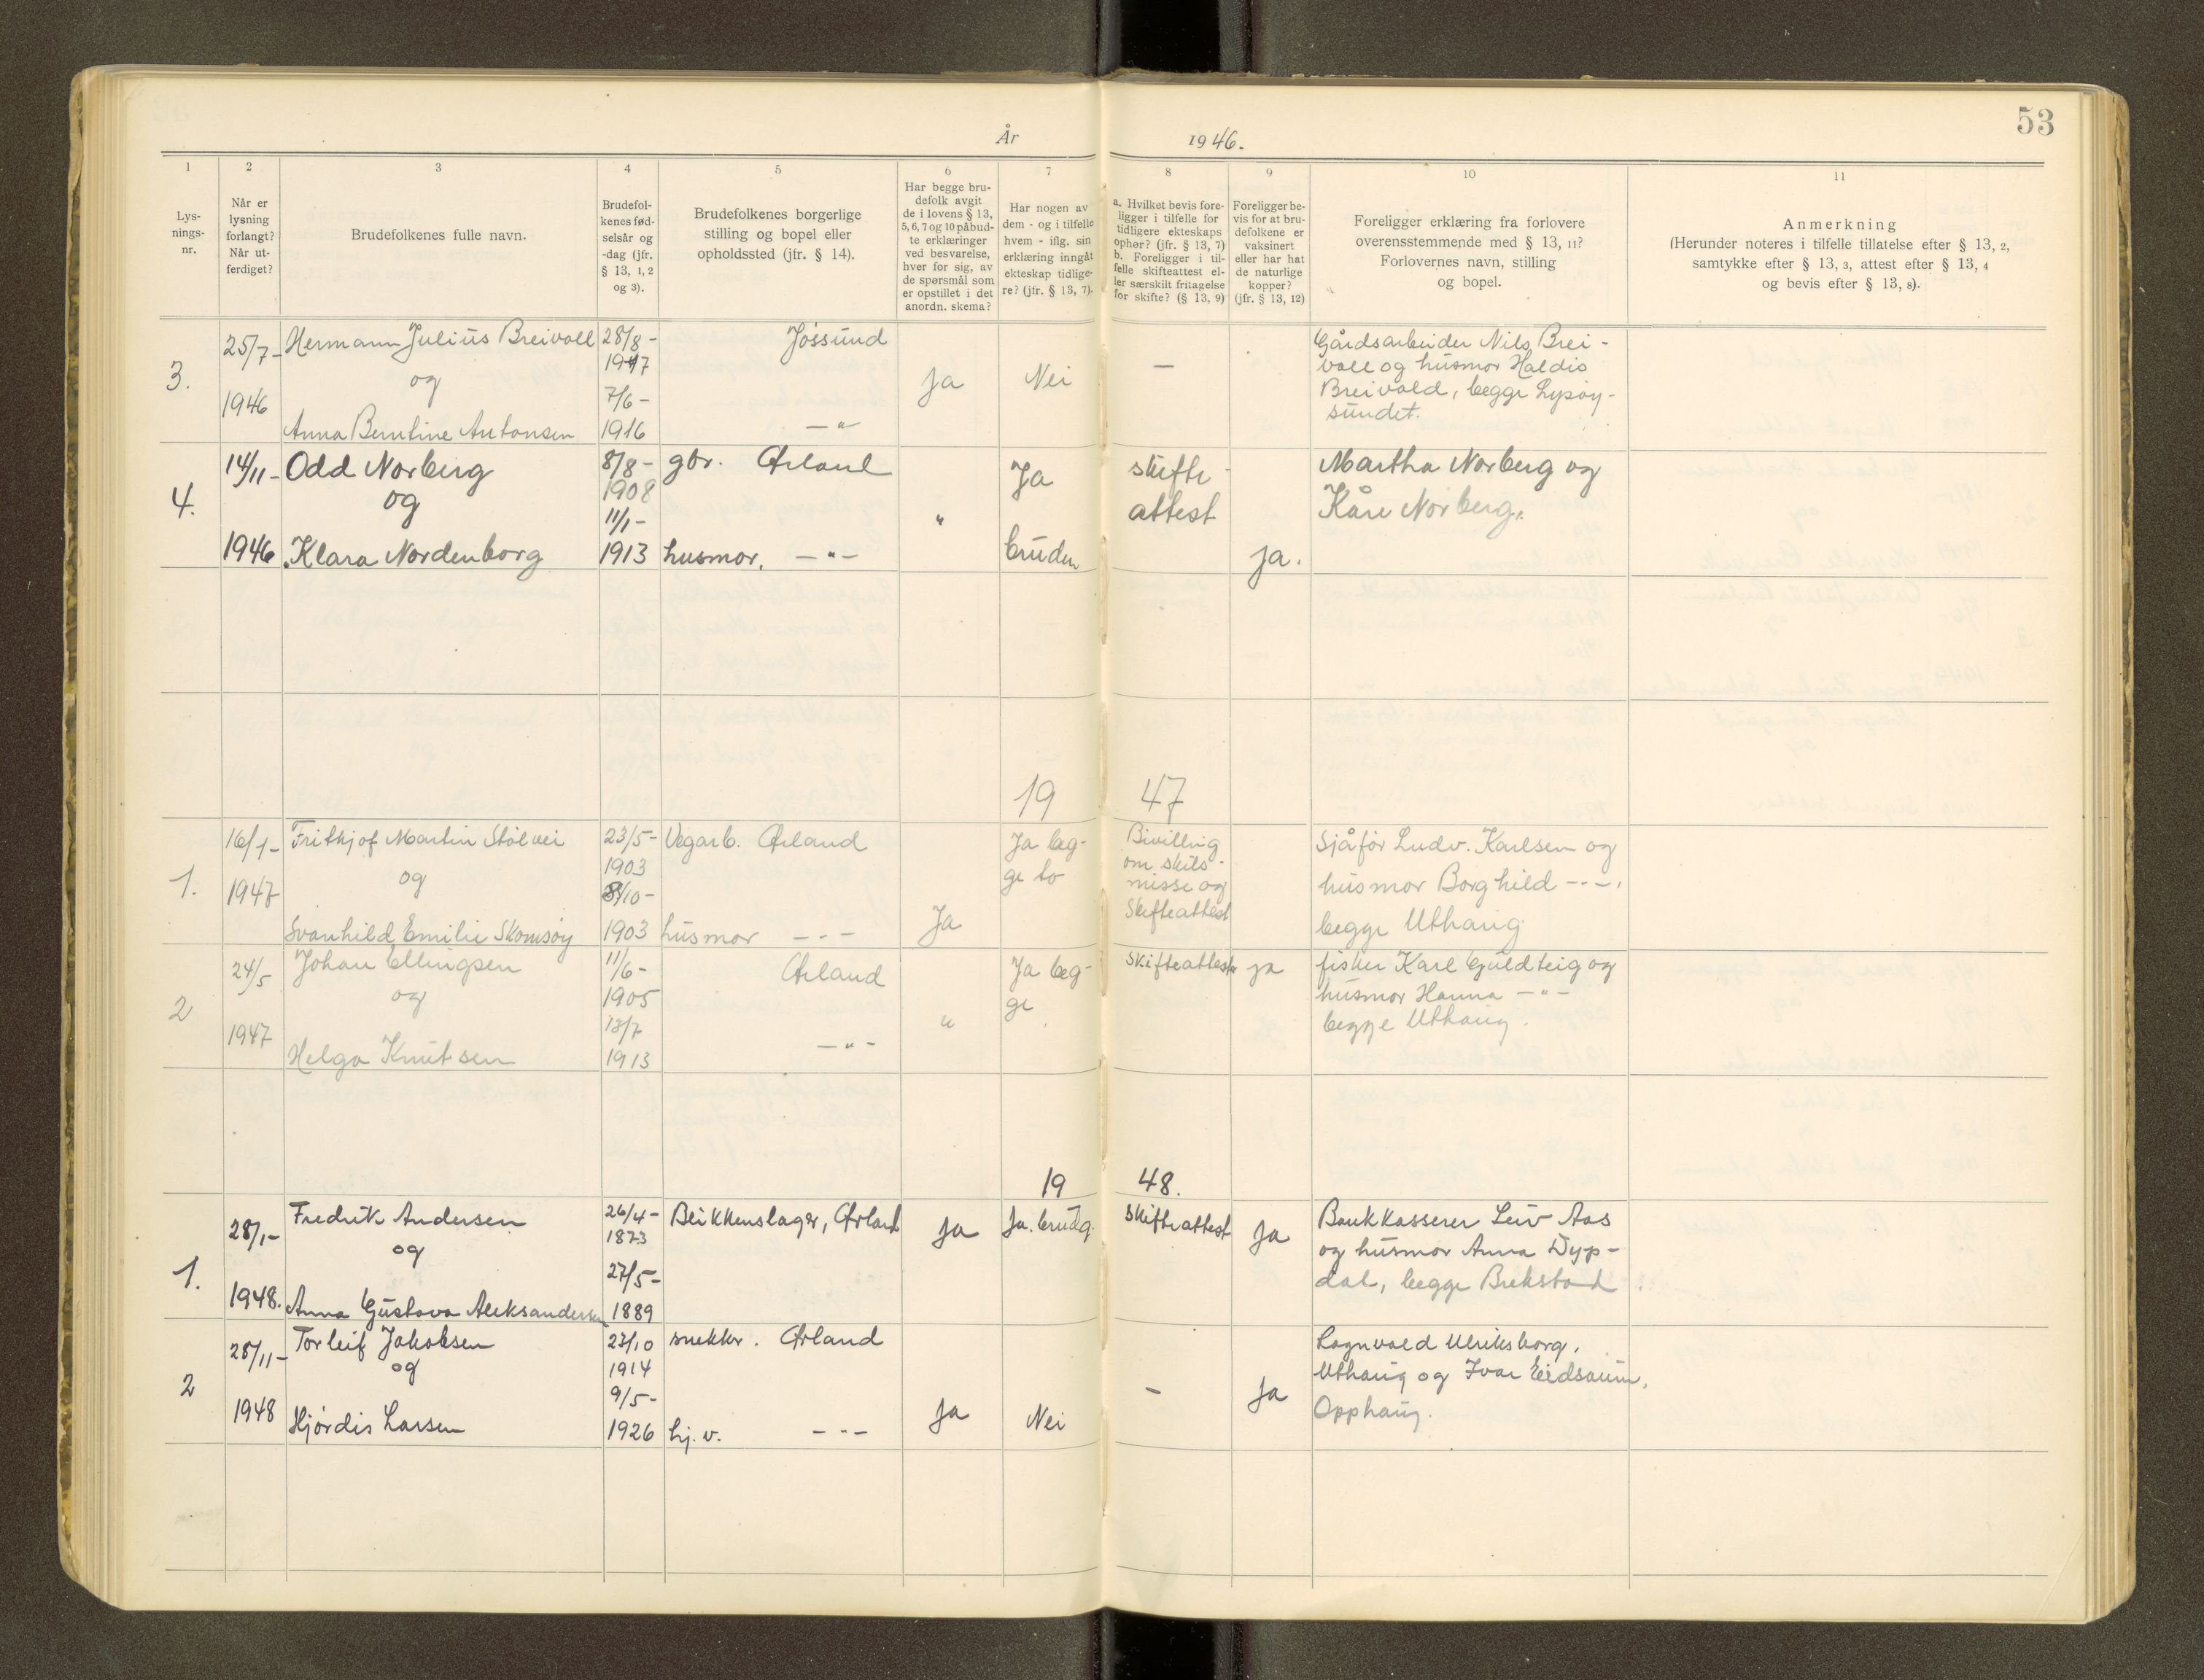 53
År 1946.
1 2 3 4 5 6 7 8 9 10 11
Lys-
nings-
nr.
Når er
lysning
forlangt?
Når ut-
ferdiget?
Brudefolkenes fulle navn.
Brudefol-
kenes fød-
selsår og
-dag (jfr.
§ 13, 1, 2
og 3).
Brudefolkenes borgerlige
stilling og bopel eller
opholdssted (jfr. § 14).
Har begge bru-
defolk avgit
de i lovens § 13,
5, 6, 7 og 10 påbud-
te erklæringer
ved besvarelse,
hver for sig, av
de spørsmål som
er opstillet i det
anordn. skema?
Har nogen av
dem - og i tilfelle
hvem - iflg. sin
erklæring inngåt
ekteskap tidlige-
re? (jfr. § 13, 7).
a. Hvilket bevis fore-
ligger i tilfelle for
tidligere ekteskaps
ophør? (jfr. § 13, 7)
b. Foreligger i til-
felle skifteattest el-
ler særskilt fritagelse
for skifte? (§ 13, 9)
Foreligger be-
vis for at bru-
defolkene er
vaksinert
eller har hat
de naturlige
kopper?
(jfr. § 13, 12)
Foreligger erklæring fra forlovere
overensstemmende med § 13, 11?
Forlovernes navn, stilling
og bopel.
Anmerkning
(Herunder noteres i tilfelle tillatelse efter § 13, 2,
samtykke efter § 13, 3, attest efter § 13, 4
og bevis efter § 13, 8).
3.
25/7-
1946
Hermann Julius Breivoll
og
Anna Berntine Antonsen
28/8-
1917
7/6-
1916
Jøssund
—"
Ja
Nei
—
Gårdsarbeider Nils Brei-
voll og husmor Haldis
Breivold, begge Lysøy-
sundet.
4.
14/11-
1946
Odd Norberg
og
Klara Nordenborg
8/8-
1908
11/1-
1913
gbr. Ørland
husmor. —"—
"
Ja
bruden
skifte-
attest
Ja.
Martha Norberg og
Kåre Norberg.
19 47
1.
16/1-
1947
Frithjof Martin Stølvei
og
Svanhild Emilie Skomsøy
23/5-
1903
8/10-
1903
Vegarb. Ørland
husmor —"—
Ja
Ja beg-
ge to
Bivilling
om skils-
misse og
Skifteattest
Sjåfør Ludv. Karlsen og
husmor Borghild —"—,
begge Uthaug
2
24/5
1947
Johan Ellingsen
og
Helga Knutsen
11/6-
1905
13/7
1913
Ørland
—"—
"
Ja beg-
ge
Skifteattester
ja
fisker Karl Guldteig og
husmor Hanna —"—
begge Uthaug.
19 48.
1.
28/1-
1948.
Fredrik Andersen
og
Anna Gustava Aleksandersen
26/4-
1873
27/5-
1889
Blikkenslager, Ørland
Ja
Ja. brudg.
Skifteattest
Ja
Bankkasserer Leiv Aas
og husmor Anna Dyp-
dal, begge Brekstad
2
25/11-
1948
Torleif Jakobsen
og
Hjørdis Larsen
27/10
1914
9/5-
1926
snekker. Ørland
hj. v. —"—
Ja
Nei
-
Ja
Ragnvald Ulriksborg,
Uthaug og Ivar Eidsaune,
Opphaug.